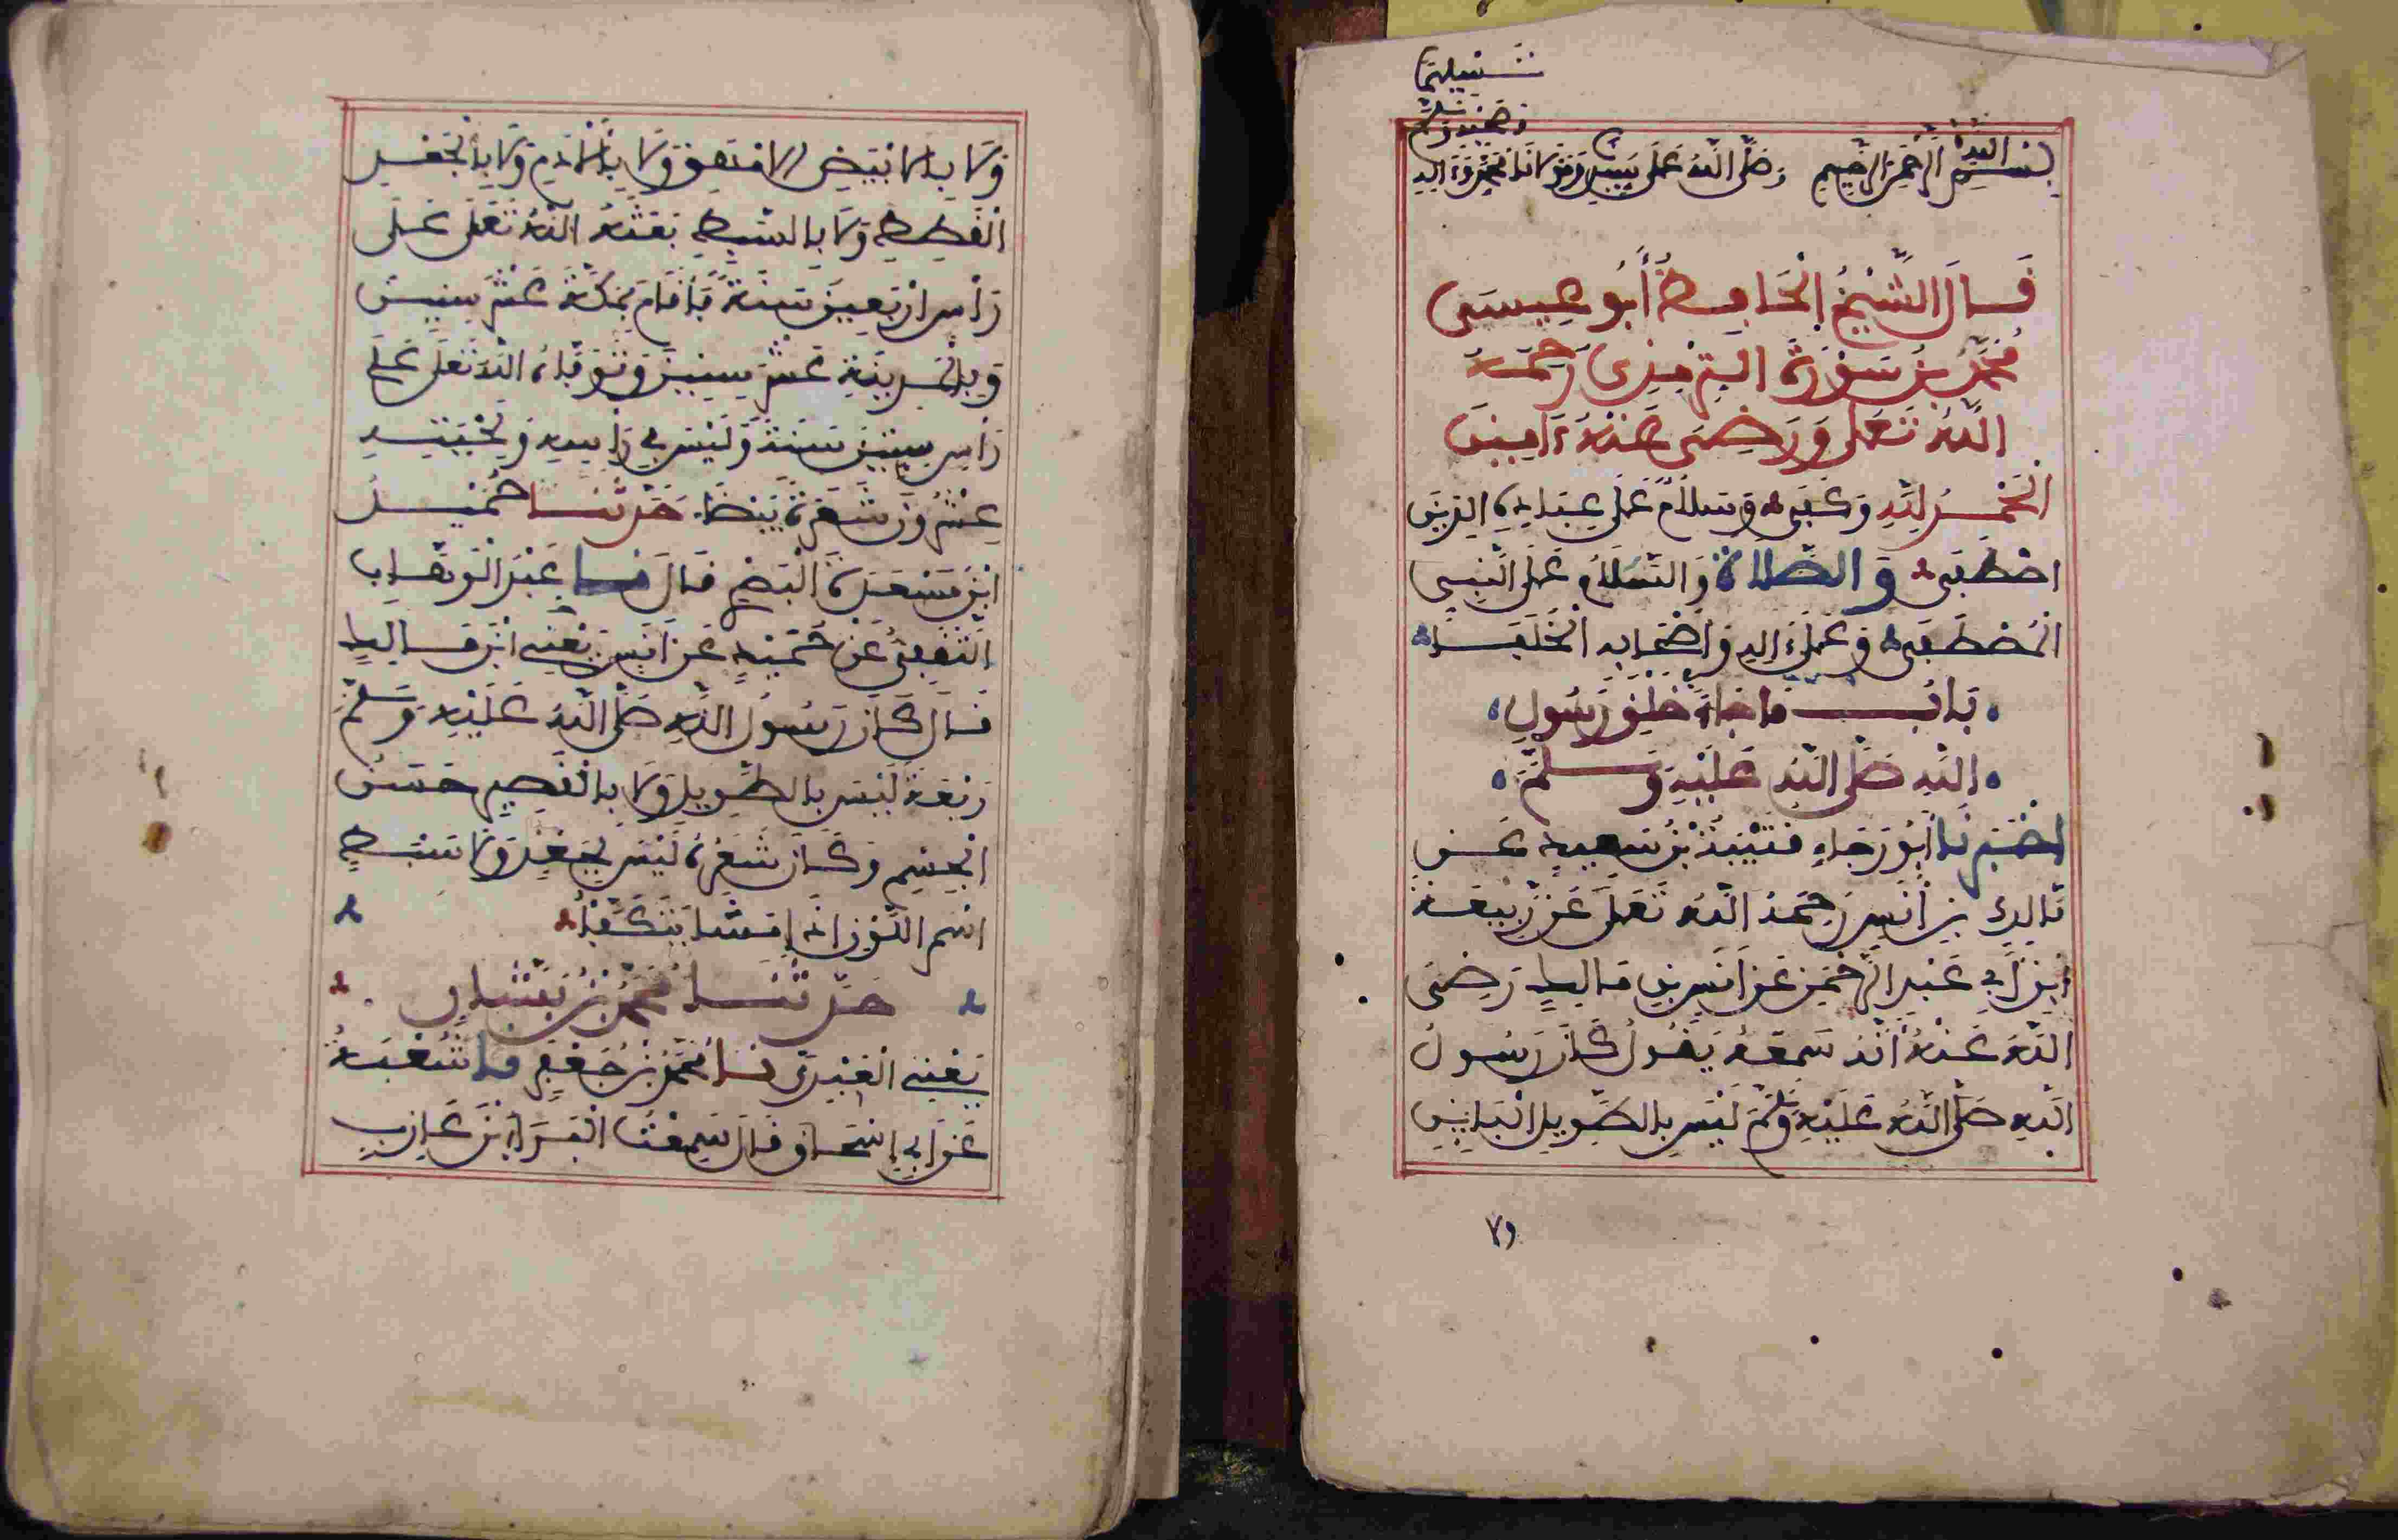 بسم الله الرحمن الرحيم وصلى الله على سيدنا ومولانا محمد وءاله
وصحبه وسلم
تسليما
قَالَ الشَّيْخُ الْحَافِظُ أَبُو عِيسَى
مُحَمَّدُ بْنُ سَوْرَةَ التِّرْمِذِى رَحِمَهُ
اللَّهُ تَعَلَى وَرَضِىَ عَنْهُ ءَامِينَ
الْحَمْدُ لِلَّهِ وَكَفَى وَسَلَامٌ عَلَى عِبَادِهِ الذِينَ
اصْطَفَى وَالصَّلَاةُ وَالسَّلَامُ عَلَى النَّبِىِّ
الْمُصْطَفَى وَعَلَى ءَالِهِ وَأَصْحَابِهِ الْخُلَفَا
بَابُ مَا جَاءَ خَلْقِ رَسُولِ
اللَّهِ صَلَّى اللَّهُ عَلَيْهِ وَسَلَّمَ
أخْبَرَنَا أَبُو رَجَاءٍ قُتَيْبَةُ بْنُ سَعِيدٍ عَنْ
مَالِكِ بْنِ أَنَسٍ رَحِمَهُ اللَّهُ تَعَلَى عَنْ رَبِيعَةَ
ابْنِ أَبِي عَبْدِ الرَّحْمَنِ عَنْ أَنَسِ بْنِ مَالِكٍ رَضِىَ
اللَّهُ عَنْهُ أَنَّهُ سَمِعَهُ يَقُولُ كَانَ رَسُولُ
اللَّهِ صَلَّى اللَّهُ عَلَيْهِ وَسَلَّمَ لَيْسَ بِالطَّوِيلِ الْبَايِنِ
وَلَا بِالْأَبْيَضِ الْأَمْهَقِ وَلَا بِالْأَدَمِ وَلَا بِالْجَعْدِ
الْقَطِطِ وَلَا بِالسَّبِطِ بَعَثَهُ اللَّهُ تَعَلَى عَلَى
رَأْسِ أَرْبَعِينَ سَنَةً فَأَقَامَ بِمَكَّةَ عَشْرَ سِنِينَ
وَبِالْمَدِينَةِ عَشْرَ سِنِينَ وَتَوَفَّاهُ اللَّهُ تَعَلَى عَلَى
رَأْسِ سِتِّينَ سَنَةً وَلَيْسَ فِي رَأْسِهِ وَلِحْيَتِهِ
عِشْرُونَ شَعَرَةً بَيْضَاءَ حَدَّثَنَا حُمَيْدُ
ابْنُ مَسْعَدَةَ الْبَصْرِ قَالَ نَا عَبْدُ الْوَهَّابِ
الثَّقَفِيُّ عَنْ حُمَيْدٍ عَنْ أَنَسٍ يَعْنِي ابْنَ مَالِكٍ
قَالَ كَانَ رَسُولُ اللَّهِ صَلَّى اللَّهُ عَلَيْهِ وَسَلَّمَ
رَبْعَةً لَيْسَ بِالطَّوِيلِ وَلَا بِالْقَصِيرِ حَسَنَ
الْجِسْمِ وَكَانَ شَعْرُهُ لَيْسَ بِجَعْدٍ وَلَا سَبْطٍ
أسْمَرَ اللَّوْنِ إِذَا مَشَا يَتَكَفَّأُ
حَدَّثَنَا مُحَمَّدُ بْنُ بَشَّارٍ
يَعْنِي الْعَبْدِيَّ نَا مُحَمَّدُ بْنُ جَعْفَرٍ نَا شُعْبَةُ
عَنْ أَبِي إِسْحَاقَ قَالَ سَمِعْتُ الْبَرَاءَ بْنَ عَازِبٍ